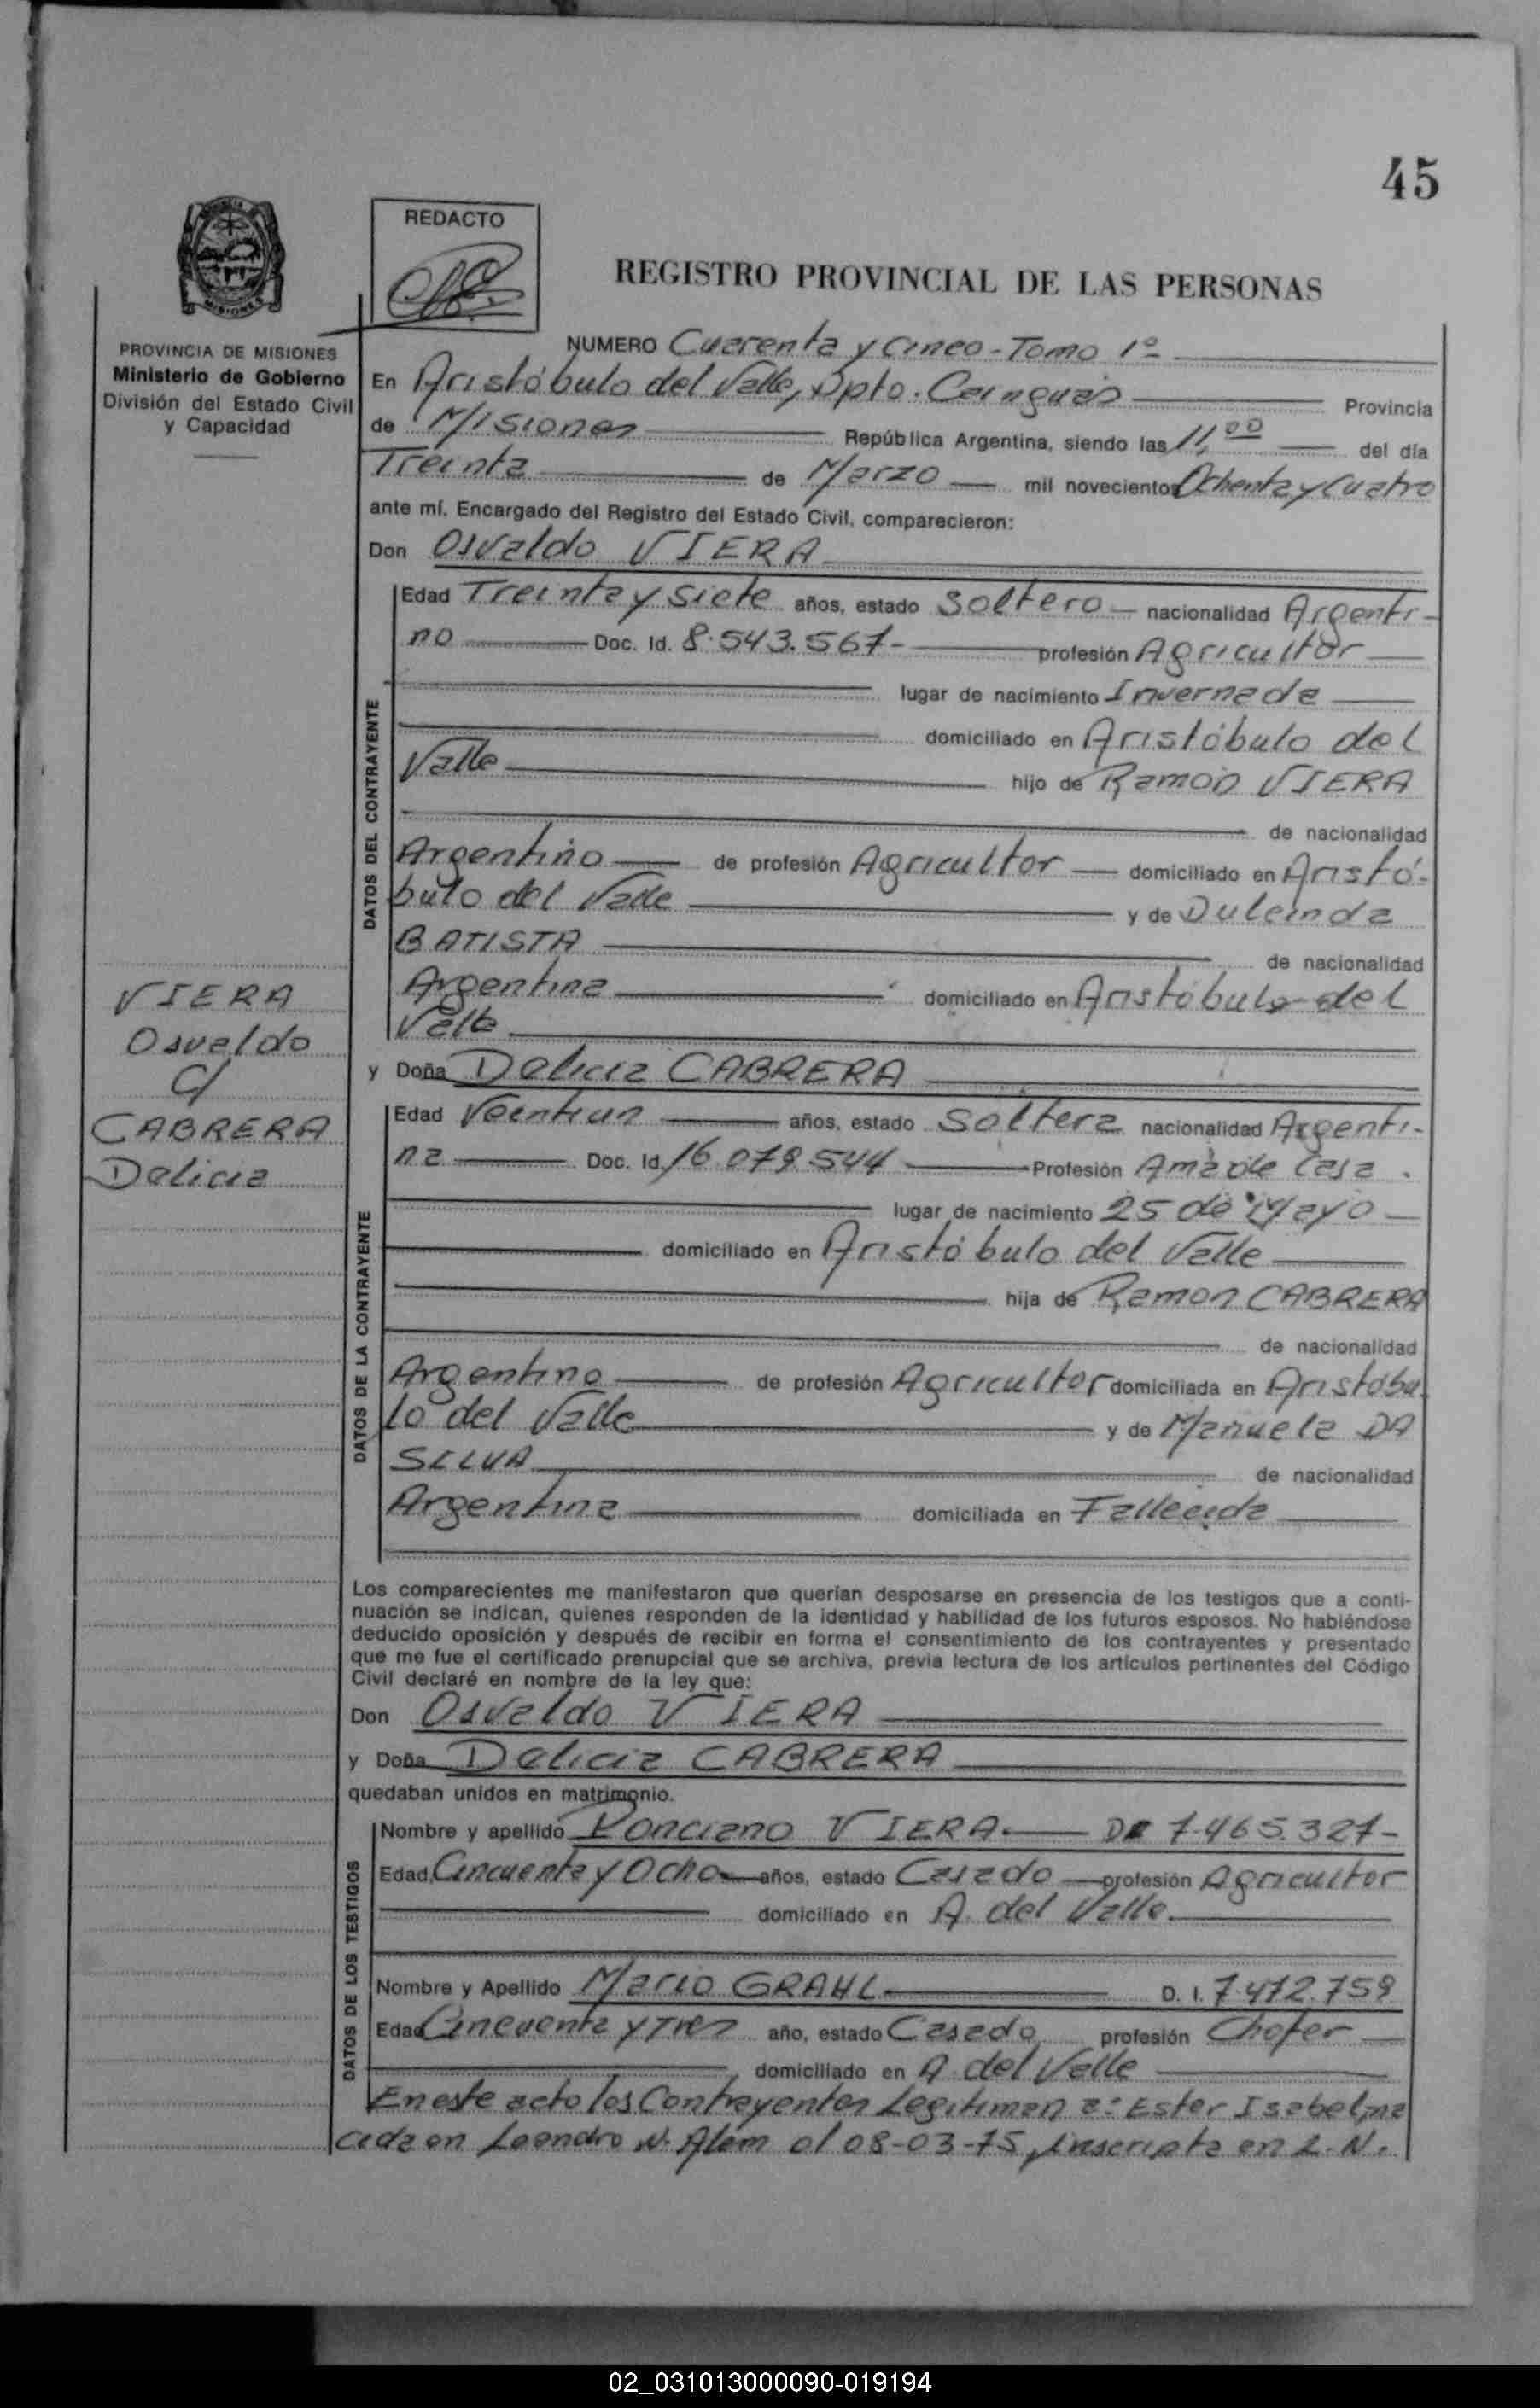 45
REDACTO
REGISTRO PROVINCIAL DE LAS PERSONAS
MISIONES
PROVINCIA DE MISIONES
Ministerio de Gobierno
División del Estado Civil
y Capacidad
NUMERO Cuarenta y Cinco - Tomo 1º
En Aristóbulo del Valle, Dpto. Cainguás Provincia
de Misiones República Argentina, siendo las 11,00 del día
Treinta de Marzo mil novecientos Ochenta y Cuatro
ante mí, Encargado del Registro del Estado Civil, comparecieron:
Don Osvaldo VIERA
DATOS DEL CONTRAYENTE
Edad Treinta y siete años, estado soltero nacionalidad Argenti-
no Doc. Id. 8.543.567- profesión Agricultor
lugar de nacimiento Invernada
domiciliado en Aristóbulo del
Valle hijo de Ramón VIERA
de nacionalidad
Argentino de profesión Agricultor domiciliado en Aristó-
bulo del Valle y de Dulcinda
BATISTA de nacionalidad
Argentina domiciliado en Aristóbulo del
Valle
VIERA
Osvaldo
C/
CABRERA
Delicia
y Doña Delicia CABRERA
DATOS DE LA CONTRAYENTE
Edad Veintiun años, estado Soltera nacionalidad Argenti-
na Doc. Id. 16.079.544 Profesión Ama de Casa.
lugar de nacimiento 25 de Mayo
domiciliado en Aristóbulo del Valle
hija de Ramon CABRERA
de nacionalidad
Argentino de profesión Agricultor domiciliada en Aristóbu
lo del Valle y de Manuela DA
SILVA de nacionalidad
Argentina domiciliada en Fallecida
Los comparecientes me manifestaron que querían desposarse en presencia de los testigos que a conti-
nuación se indican, quienes responden de la identidad y habilidad de los futuros esposos. No habiéndose
deducido oposición y después de recibir en forma el consentimiento de los contrayentes y presentado
que me fue el certificado prenupcial que se archiva, previa lectura de los artículos pertinentes del Código
Civil declaré en nombre de la ley que:
Don Osvaldo VIERA
y Doña Delicia CABRERA
quedaban unidos en matrimonio.
DATOS DE LOS TESTIGOS
Nombre y apellido Ponciano VIERA. 7.465.327-
Edad Cincuenta y Ocho años, estado Casado profesión Agricultor
domiciliado en A. del Valle.
Nombre y Apellido Mario GRAHL D. I. 7.472.759
Edad Cincuenta y Tres año, estado Casado profesión Chofer
domiciliado en A. del Valle
En este acto los Contrayentes Legitiman a: Ester Isabel, na
cida en Leandro N. Alem el 08-03-75, inscripta en L. N.
02_031013000090-019194